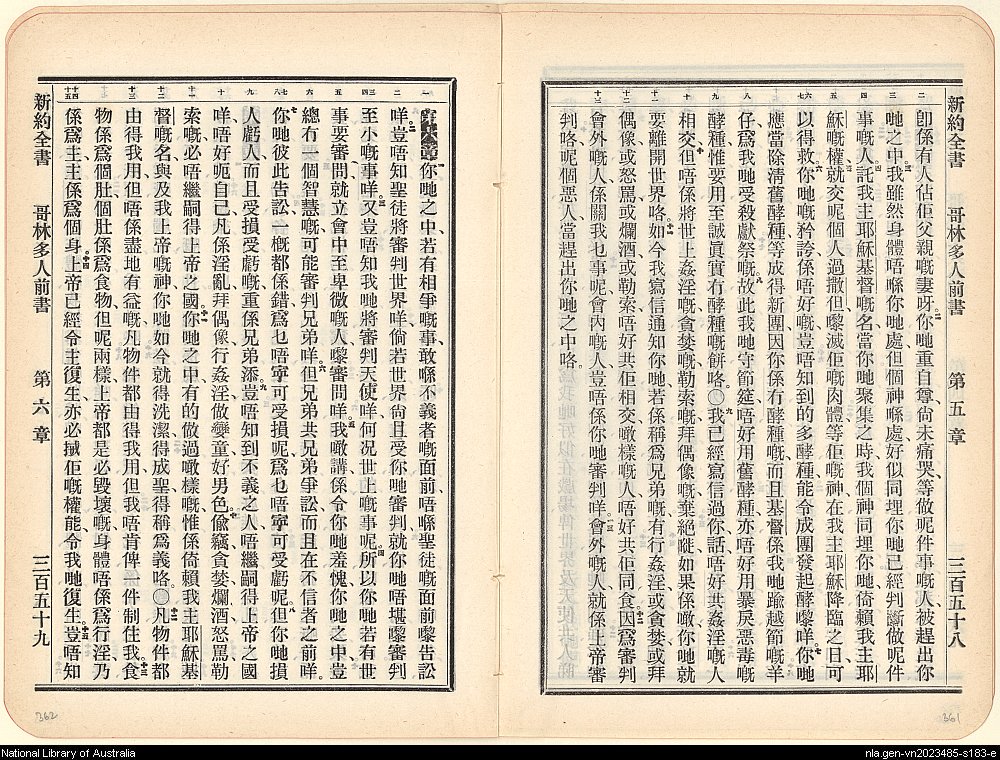 新約全書 哥林多人前書 第五章 三百五十八
卽係有人佔佢父親嘅妻呀、你哋重自尊、尙未痛哭、等做呢件事嘅人、被趕出你
哋之中、我雖然身體唔喺你哋處、但個神喺處、好似同埋你哋、已經判斷做呢件
事嘅人、託我主耶穌基督嘅名、當你哋聚集之時、我個神同埋你哋、倚賴我主耶
穌嘅權、就交呢個人過撒但、嚟滅佢嘅肉體、等佢嘅神、在我主耶穌降臨之日、可
以得救、你哋嘅矜誇係唔好嘅、豈唔知到的多酵種、能令成團發起酵嚟咩、你哋
應當除淸舊酵種、等成得新團、因你係冇酵種嘅、而且基督係我哋踰越節嘅羊
仔、爲我哋受殺獻祭嘅、故此我哋守節筵、唔好用舊酵種、亦唔好用暴戾惡毒嘅
酵種、惟要用至誠眞實冇酵種嘅餅咯、〇我已經寫信過你、話唔好共姦淫嘅人
相交、但唔係將世上姦淫嘅、貪婪嘅、勒索嘅、拜偶像嘅、棄絕嘥、如果係噉、你哋就
要離開世界咯、如今我寫信通知你哋、若係稱爲兄弟嘅、有行姦淫、或貪婪、或拜
偶像、或怒罵、或爛酒、或勒索、唔好共佢相交、噉樣嘅人、唔好共佢同食、因爲審判
會外嘅人、係關我乜事呢、會內嘅人、豈唔係你哋審判咩、會外嘅人、就係上帝審
判咯、呢個惡人、當趕出你哋之中咯。
第六章 你哋之中、若有相爭嘅事、敢喺不義者嘅面前、唔喺聖徒嘅面前嚟告訟
咩、豈唔知聖徒將審判世界咩、倘若世界尙且受你哋審判、就你哋唔堪嚟審判
至小嘅事咩、又豈唔知我哋將審判天使咩、何况世上嘅事呢、所以你哋若有世
事要審問、就立會中至卑微嘅人嚟審問咩、我噉講係令你哋羞愧、你哋之中、豈
總冇一個智慧嘅、可能審判兄弟咩、但兄弟共兄弟爭訟、而且在不信者之前咩。
你哋彼此告訟、一槪都係錯、爲乜唔寧可受損呢、爲乜唔寧可受虧呢、但你哋損
人虧人、而且受損受虧嘅、重係兄弟添、豈唔知到不義之人、唔繼嗣得上帝之國
咩、唔好呃自己、凡係淫亂、拜偶像、行姦淫、做孌童、好男色、偸竊、貪婪、爛酒、怒罵、勒
索嘅、必唔繼嗣得上帝之國、你哋之中、有的做過噉樣嘅、惟係倚賴我主耶穌基
督嘅名、與及我上帝嘅神、你哋如今就得洗潔、得成聖、得稱爲義咯。〇凡物件都
由得我用、但唔係盡地有益嘅、凡物件都由得我用、但我唔肯俾一件制住我、食
物係爲個肚、個肚係爲食物、但呢兩樣、上帝都是必毀壞嘅、身體唔係爲行淫、乃
係爲主、主係爲個身、上帝已經令主復生、亦必㨢佢嘅權能、令我哋復生、豈唔知
新約全書 哥林多人前書 第六章 三百五十九
362
361
National Library of Australia
nla.gen-vn2023485-s183-e